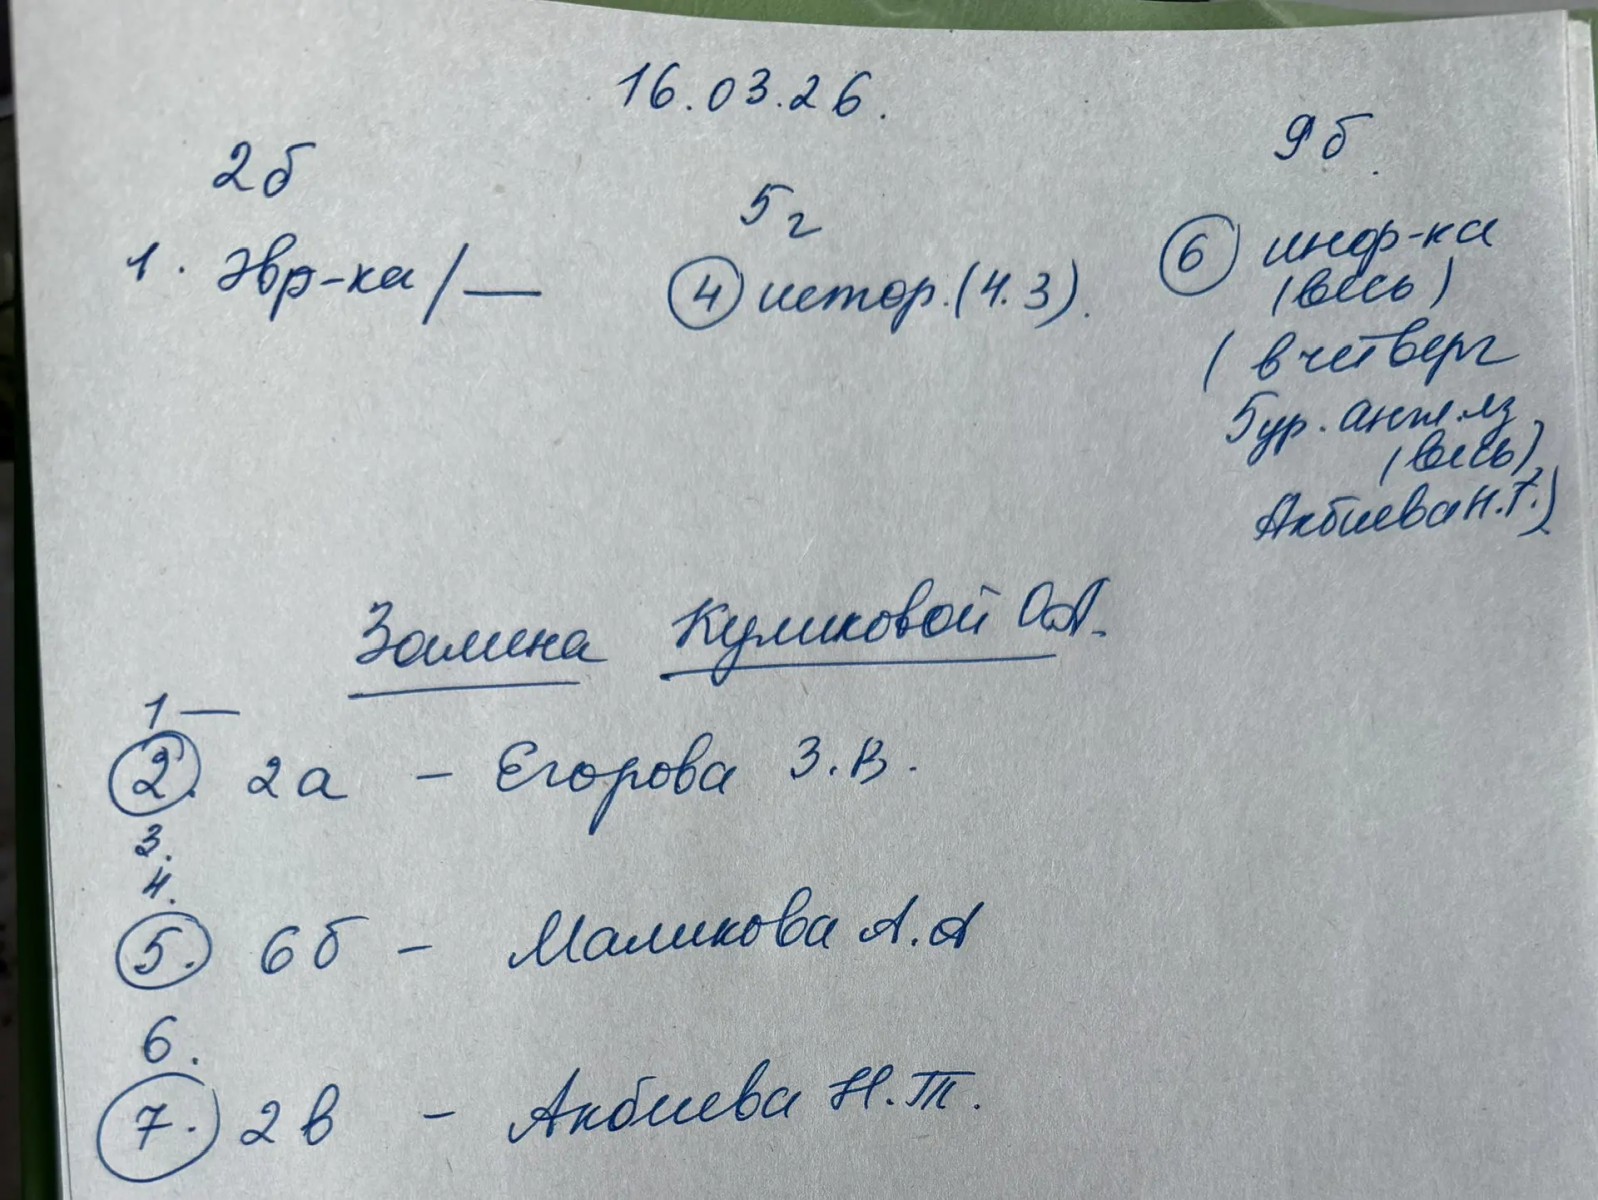 16.03.26.
2б
1. эвр-ка / —
5г
4 истор. (4.3).
9б.
6 инф-ка
(весь)
(в четверг
5 ур. англ. яз
(весь)
Акбиева Н.Т.)
Замена Куликовой О.А.
1 —
2. 2а - Егорова З.В.
3.
4.
5. 6б - Маликова А.А
6.
7. 2в - Акбиева Н.Т.